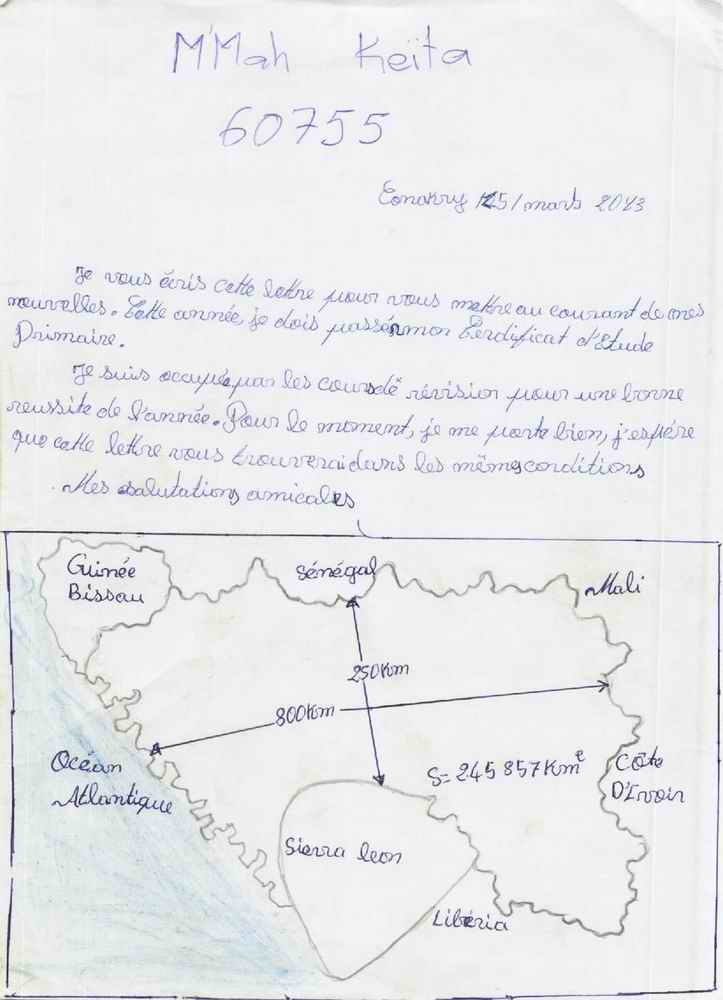 M'Mah Keïta
60755
Conakry 15/mars 2013
Je vous écris cette lettre pour vous mettre au courant de mes
nouvelles. Cette année, je dois passér mon Cerdificat d'Etude
Primaire.
Je suis occupé par les cours de révision pour une bonne
reussite de l'année. Pour le moment, je me porte bien, j'espére
que cette lettre vous trouverai dans les mêmes conditions
Mes salutations amicales
Guinée
Bissau
Sénégal
Mali
250Km
800Km
Océan
Atlantique
S= 245 857Km²
Côte
D'Ivoir
Sierra leon
Libéria